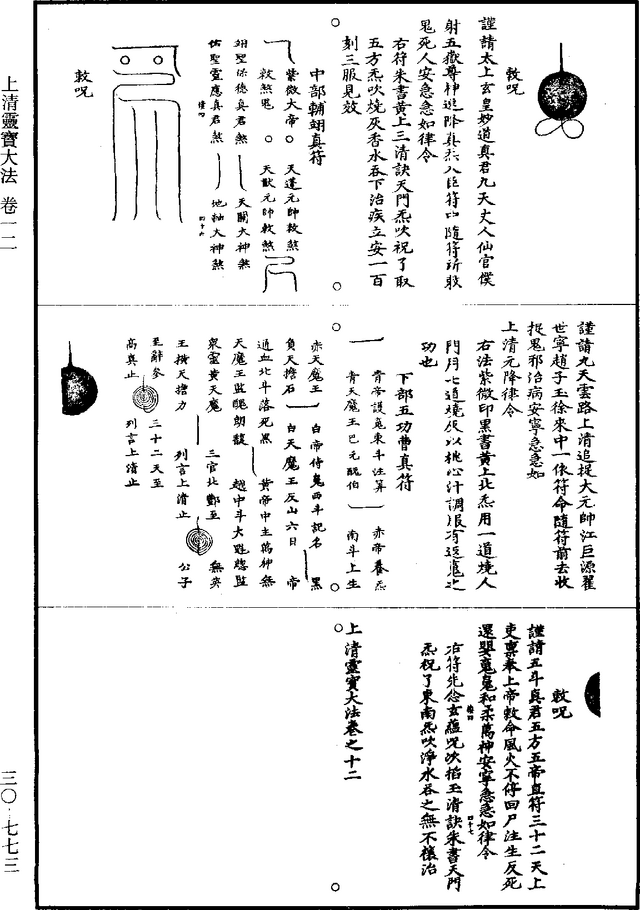 敕呪
謹請太上玄皇妙道真君九天丈人仙官僕
射五嶽尊神追降真炁八臣符吏隨符所救
鬼死人安急急如律令
右符朱書黃上三清訣天門炁吹祝了取
五方炁吹燒灰香水吞下治疾立安一百
刻三服見效
中部輔翊真符
紫微大帝
天蓬元帥敕煞
敕煞鬼
天猷元帥敕煞
翊聖保德真君煞
天關大神煞
佑聖靈應真君煞
地軸大神煞
敕呪
謹請九天雲路上清追捉大元帥江巨源翟
世寧趙子玉徐來中一依符命隨符前去收
捉鬼邪治病安寧急急如
上清元降律令
右法紫微印黑書黃上北炁用一道燒人
門月七道燒灰以桃心汁調服有返魂之
功也
下部五功曹真符
青帝護魂東斗注算
赤帝養炁
青天魔王巴元醜伯
南斗上生
赤天魔王
白帝侍魄西斗記名
黑
負天擔石
白天魔王反山六目
帝
通血北斗落死黑
黃帝中主萬神無
天魔王監醜朗馥
越中斗大魁總監
眾靈黃天魔
三官北酆至
無英
王橫天擔力
列言上清止
公子
至解參
三十二天至
高真止
列言上清止
敕呪
謹請五斗真君五方五帝直符三十二天上
吏稟奉上帝敕命風火不停回尸注生反死
還嬰魂魄和柔萬神安寧急急如律令
右符先念玄蘊呪次掐玉清訣朱書天門
炁祝了東南炁吹淨水吞之無不禳治
上清靈寶大法卷之十二
上清靈寶大法 卷一二
三〇·七七三